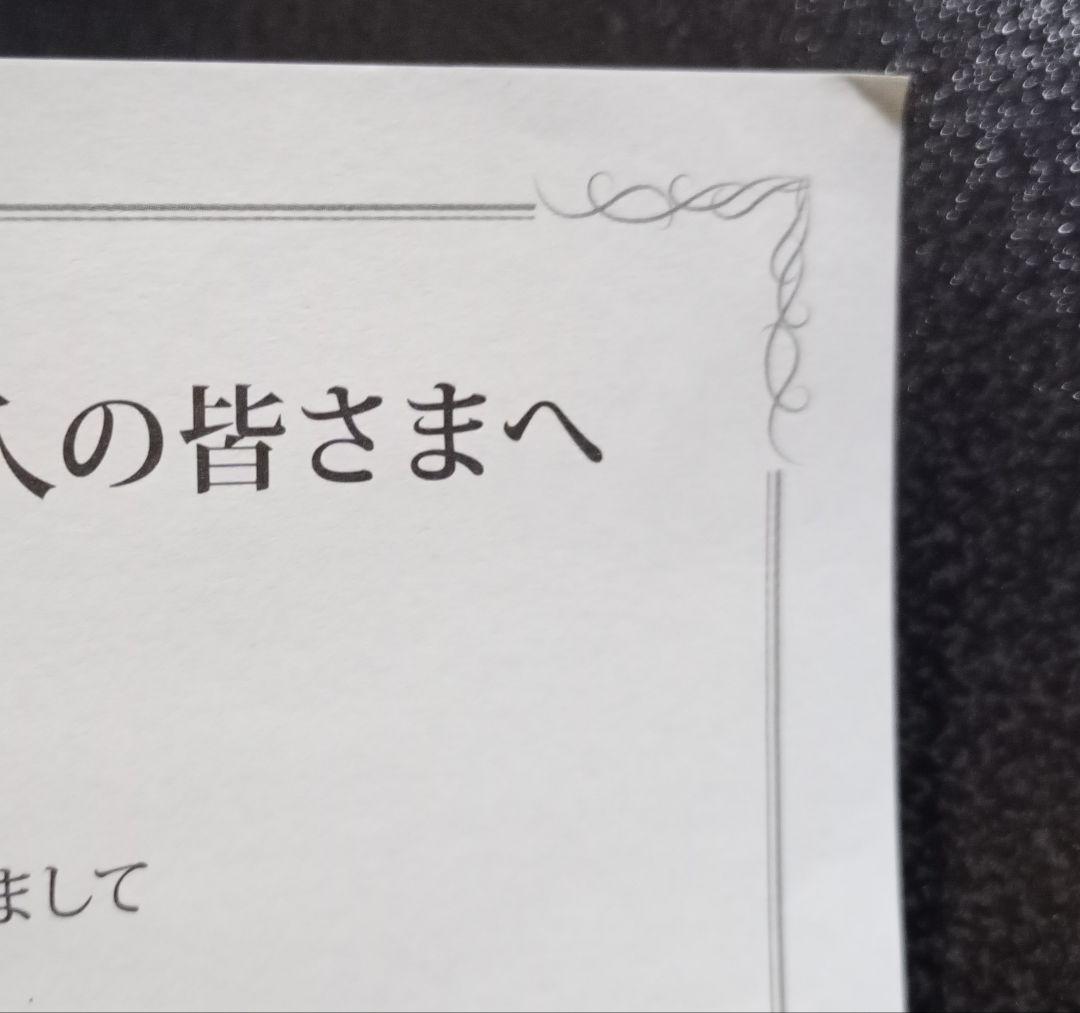 の皆さまへ
まして